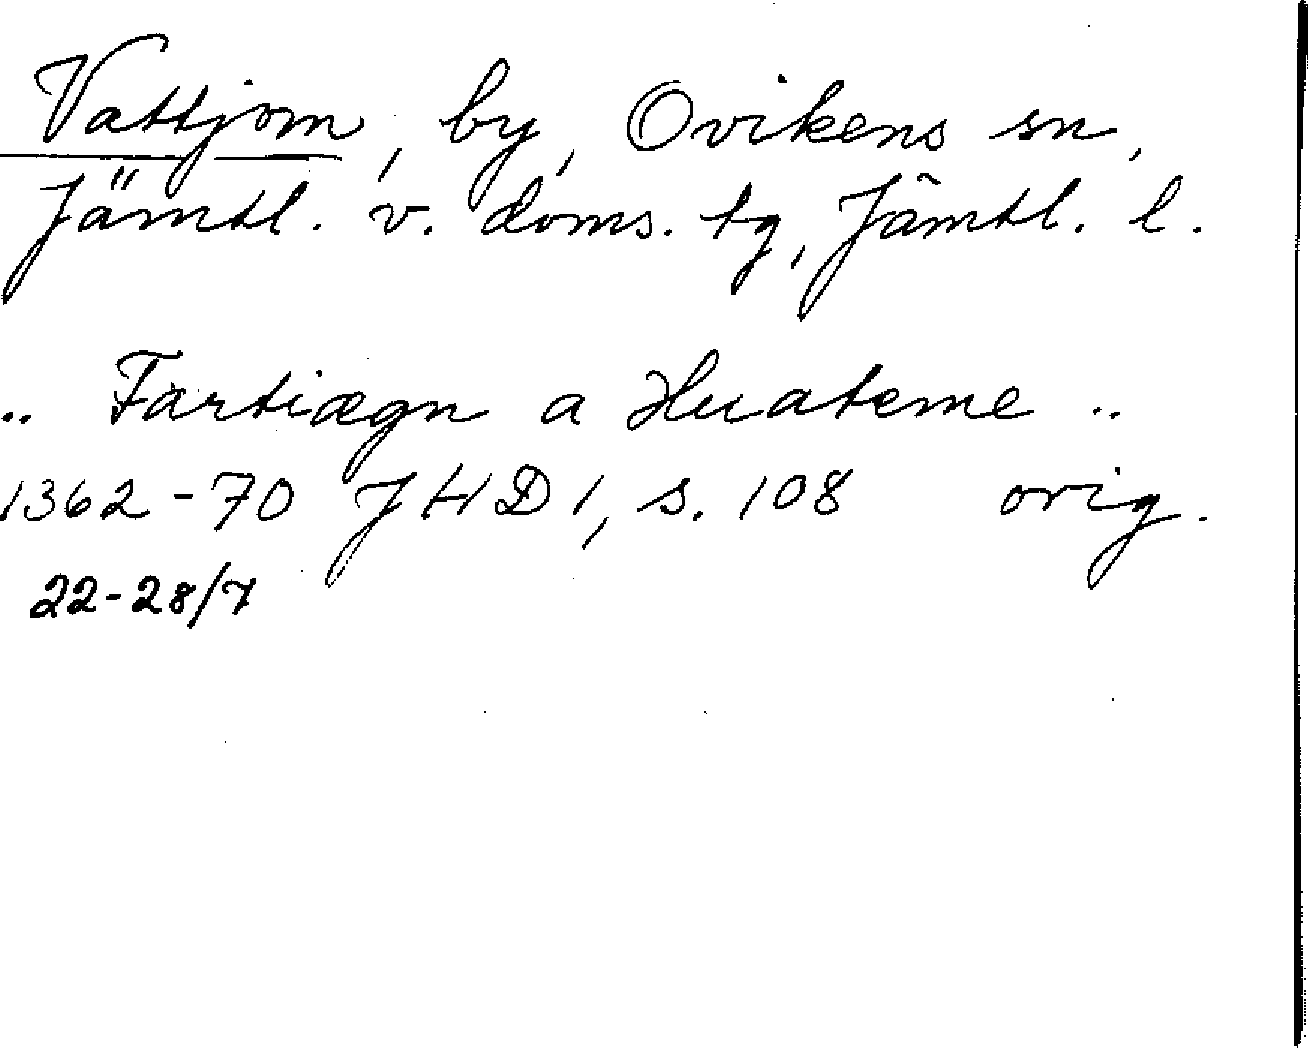 Vattjom, by, Ovikens sn,
Jämtl. v. doms. tg, Jämtl. l.
.. Fartiægn a Huateme ..
1362-70 JHD 1, s. 108 orig.
22-28/7